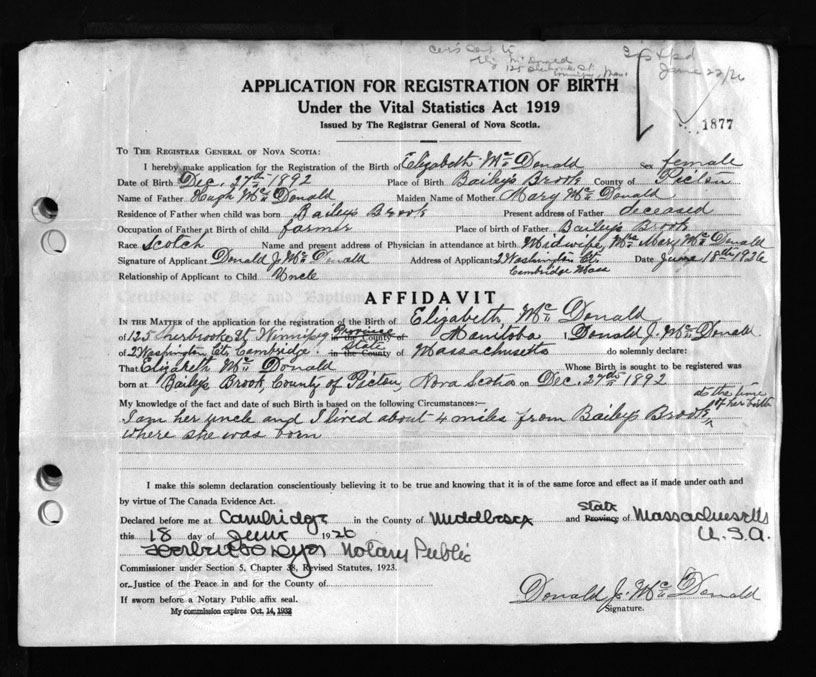 Mc Donald
125 Sherbrooke St
Winnipeg, Man.
June 22/26
APPLICATION FOR REGISTRATION OF BIRTH
Under the Vital Statistics Act 1919
Issued by The Registrar General of Nova Scotia.
1877
TO THE REGISTRAR GENERAL OF NOVA SCOTIA:
I hereby make application for the Registration of the Birth of Elizabeth Mc Donald Sex female
Date of Birth Dec. 27th 1892 Place of Birth Bailey's Brook County of Pictou
Name of Father Hugh Mc Donald Maiden Name of Mother Mary Mc Donald
Residence of Father when child was born Bailey's Brook Present address of Father deceased
Occupation of Father at Birth of child farmer Place of birth of Father Bailey's Brook
Race Scotch Name and present address of Physician in attendance at birth Midwife, Mrs Mary Mc Donald
Signature of Applicant Donald J. Mc Donald Address of Applicant 2 Washington Ct. Date June 18th 1926
Cambridge Mass
Relationship of Applicant to Child Uncle
AFFIDAVIT
IN THE MATTER of the application for the registration of the Birth of Elizabeth Mc Donald
of 125 Sherbrooke St Winnipeg Province in the County of Manitoba I, Donald J. Mc Donald
of 2 Washington Ct. Cambridge State in the County of Massachusetts do solemnly declare:
That Elizabeth Mc Donald Whose Birth is sought to be registered was
born at Bailey's Brook, County of Pictou, Nova Scotia on Dec. 27th 1892
My knowledge of the fact and date of such Birth is based on the following Circumstances:— at the time of her birth
I am her uncle and I lived about 4 miles from Bailey's Brook
where she was born
I make this solemn declaration conscientiously believing it to be true and knowing that it is of the same force and effect as if made under oath and
by virtue of The Canada Evidence Act.
Declared before me at Cambridge in the County of Middlesex and Province State of Massachusetts
this 18 day of June 1926 U.S.A.
Notary Public
Commissioner under Section 5, Chapter 38, Revised Statutes, 1923.
or, Justice of the Peace in and for the County of
If sworn before a Notary Public affix seal.
My commission expires Oct. 14, 1932
Donald J. Mc Donald
Signature.